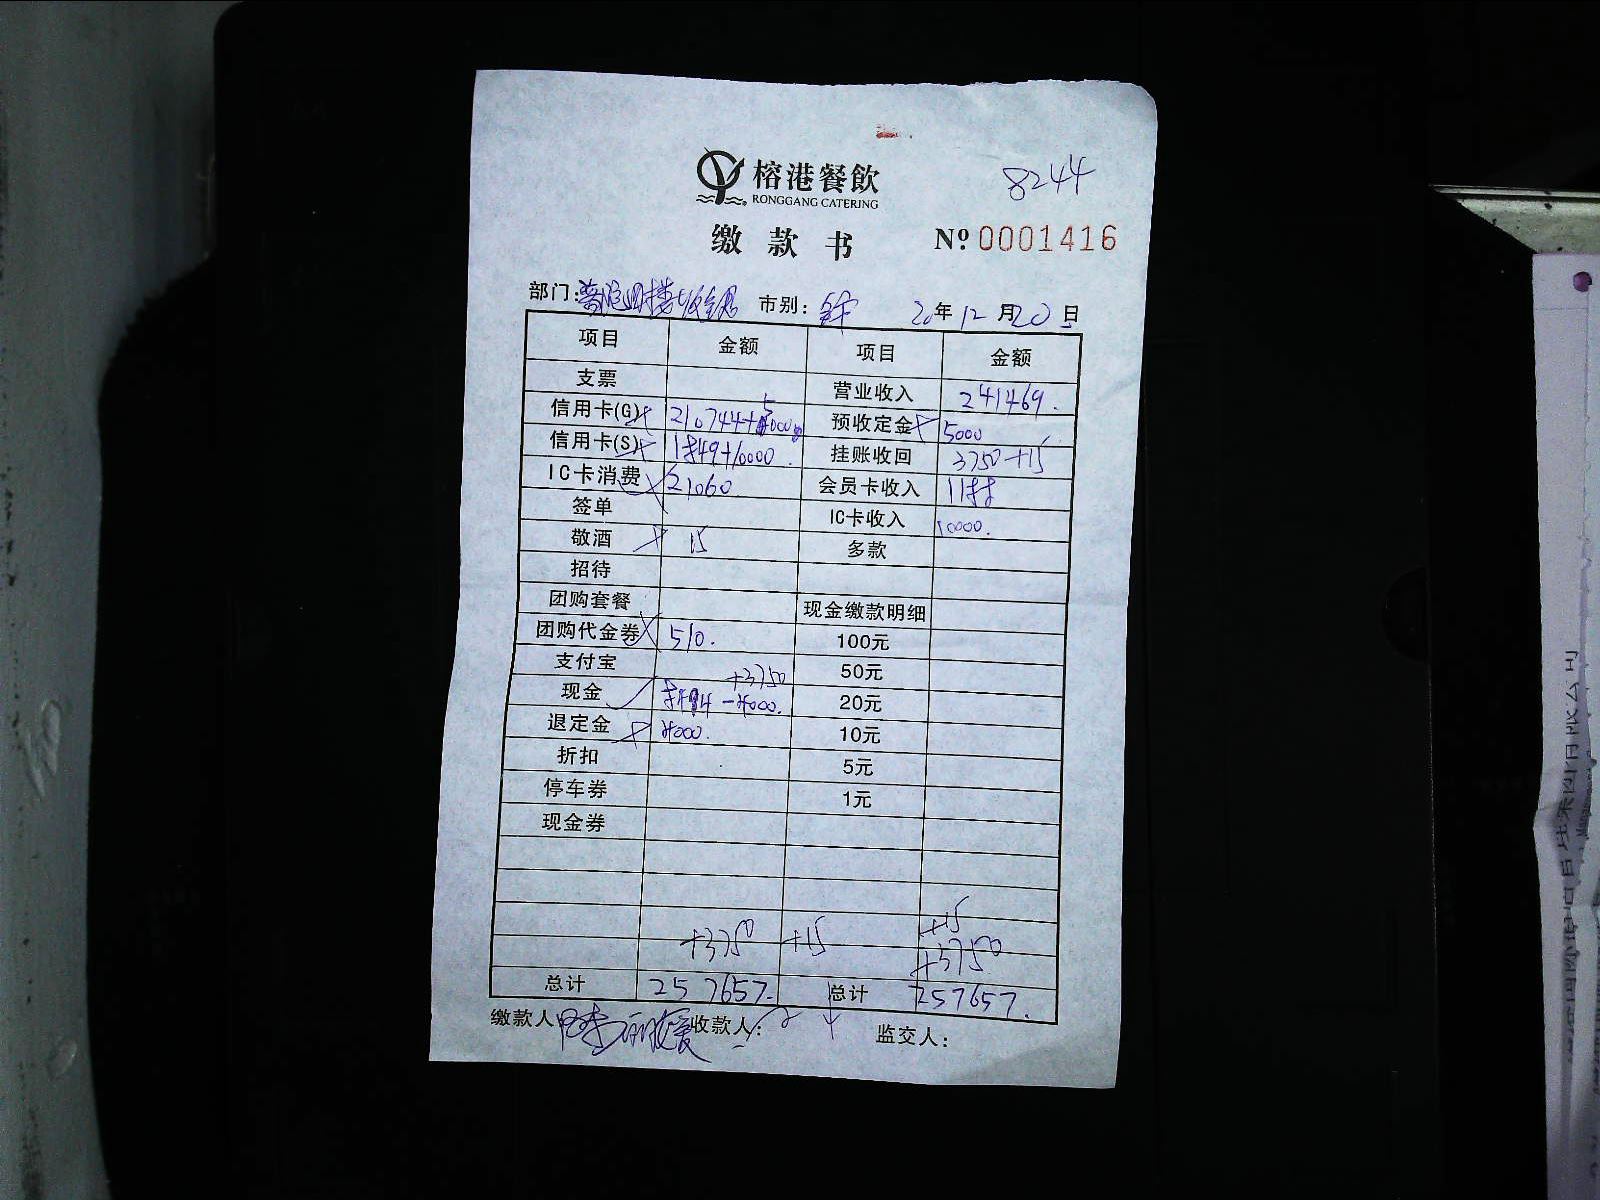 8244
榕港餐飲
RONGGANG CATERING
缴款书 Nº 0001416
部门: 市别: 20年12月20日
项目 金额 项目 金额
支票 营业收入 241469.
信用卡(G) 210744+5000 预收定金 5000
信用卡(S) 1849+10000 挂账收回 3750+15
IC卡消费 21060 会员卡收入 1188
签单 IC卡收入 10000.
敬酒 15 多款
招待
团购套餐 现金缴款明细
团购代金券 510. 100元
支付宝 50元
现金 8494-4000. +3750 20元
退定金 4000. 10元
折扣 5元
停车券 1元
现金券
+3750 +15 +15
+3750
总计 257657. 总计 257657.
缴款人 收款人: 监交人: